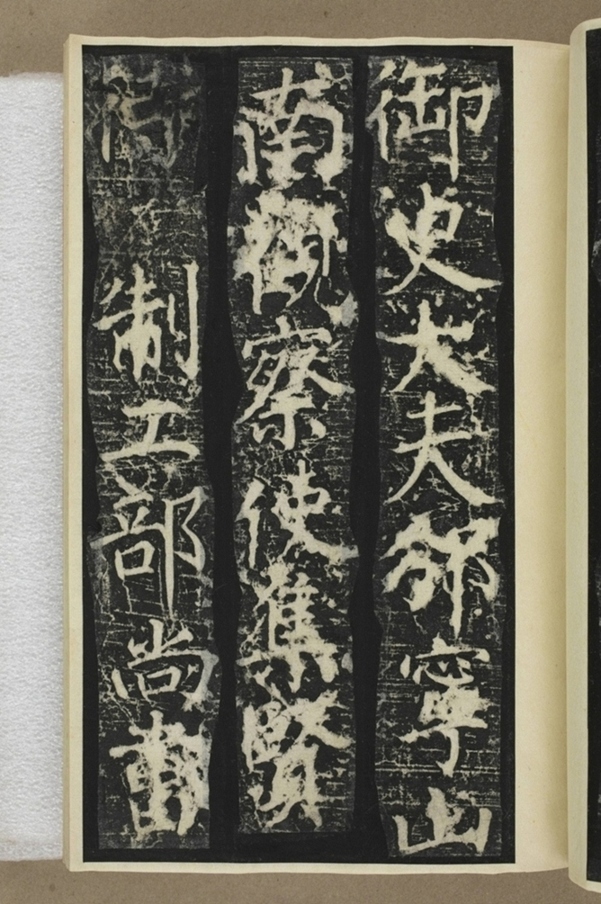 御史大夫邠寧山
南觀察使集賢
制工部尚書